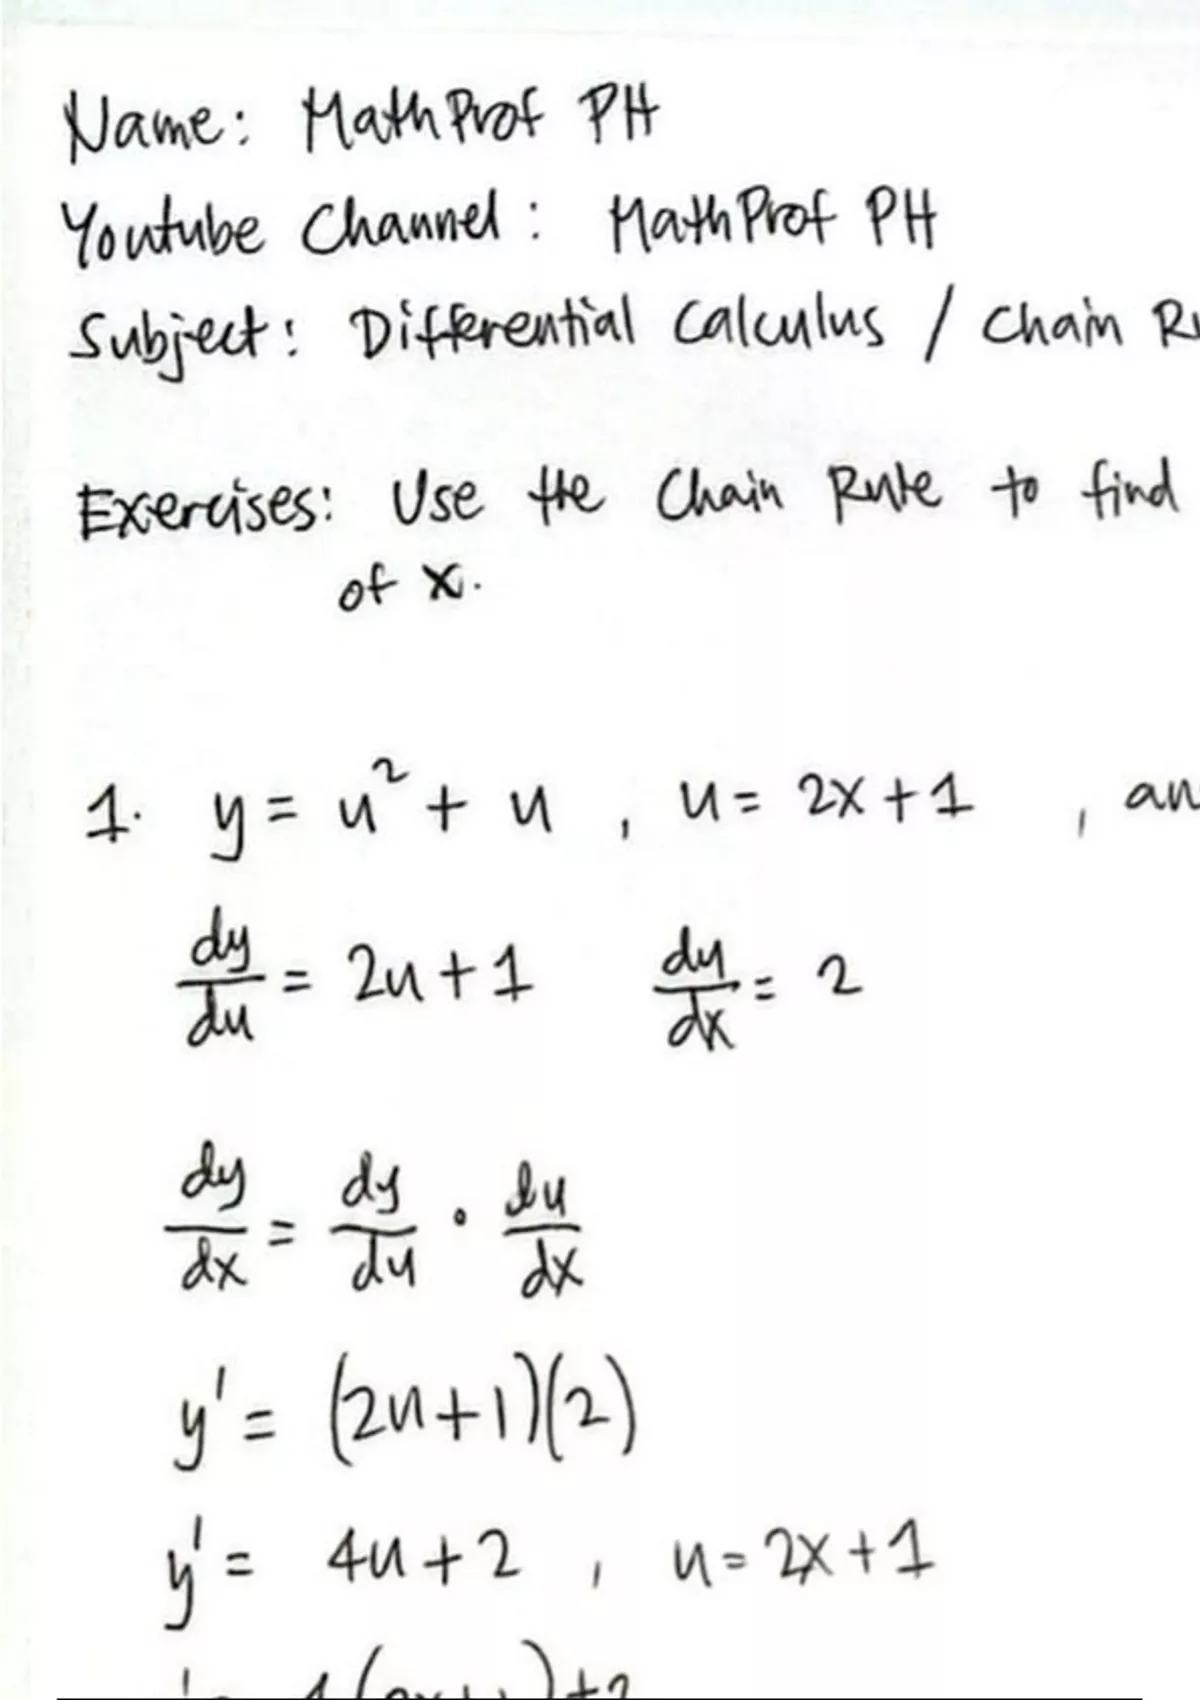 Name: MathProf PH
Youtube Channel: MathProf PH
Subject: Differential Calculus / Chain Ru
Exercises: Use the Chain Rule to find
of x.
1. y = u² + u , u = 2x + 1 , an
dy/du = 2u + 1 du/dx = 2
dy/dx = dy/du · du/dx
y' = (2u+1)(2)
y' = 4u + 2 , u = 2x + 1